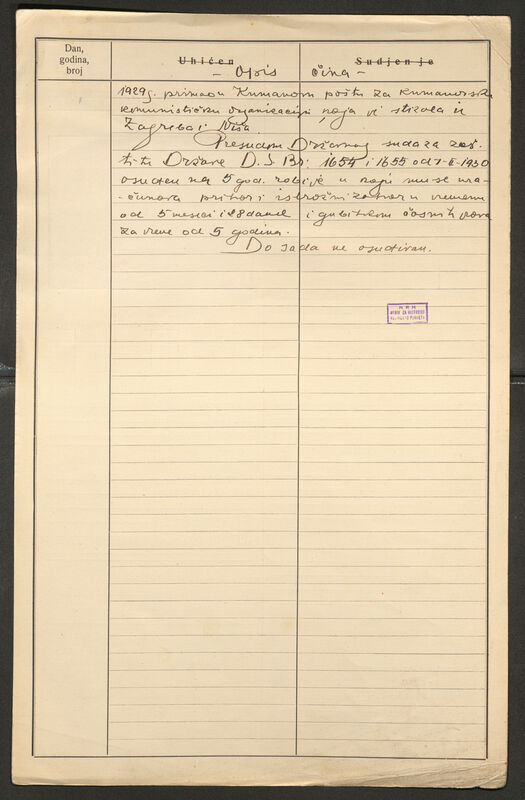 Dan,
godina,
broj
Uhićen
Sudjenje
- Opis čina -
1929 g. primao u Kumanovu poštu za kumanovsku
komunističku organizaciju koja je stizala iz
Zagreba i Niša.
Presudom Državnog suda za zaš-
titu Države D. S. Br. 1654 i 1655 od 7-6-1930
osudjen na 5 god. robije u koju mu se ura-
-čunava pritvor i istražni zatvor u vremenu
od 5 meseci i 28 dana i gubitkom časnih prava
za vreme od 5 godina.
Do sada ne osudjivan.